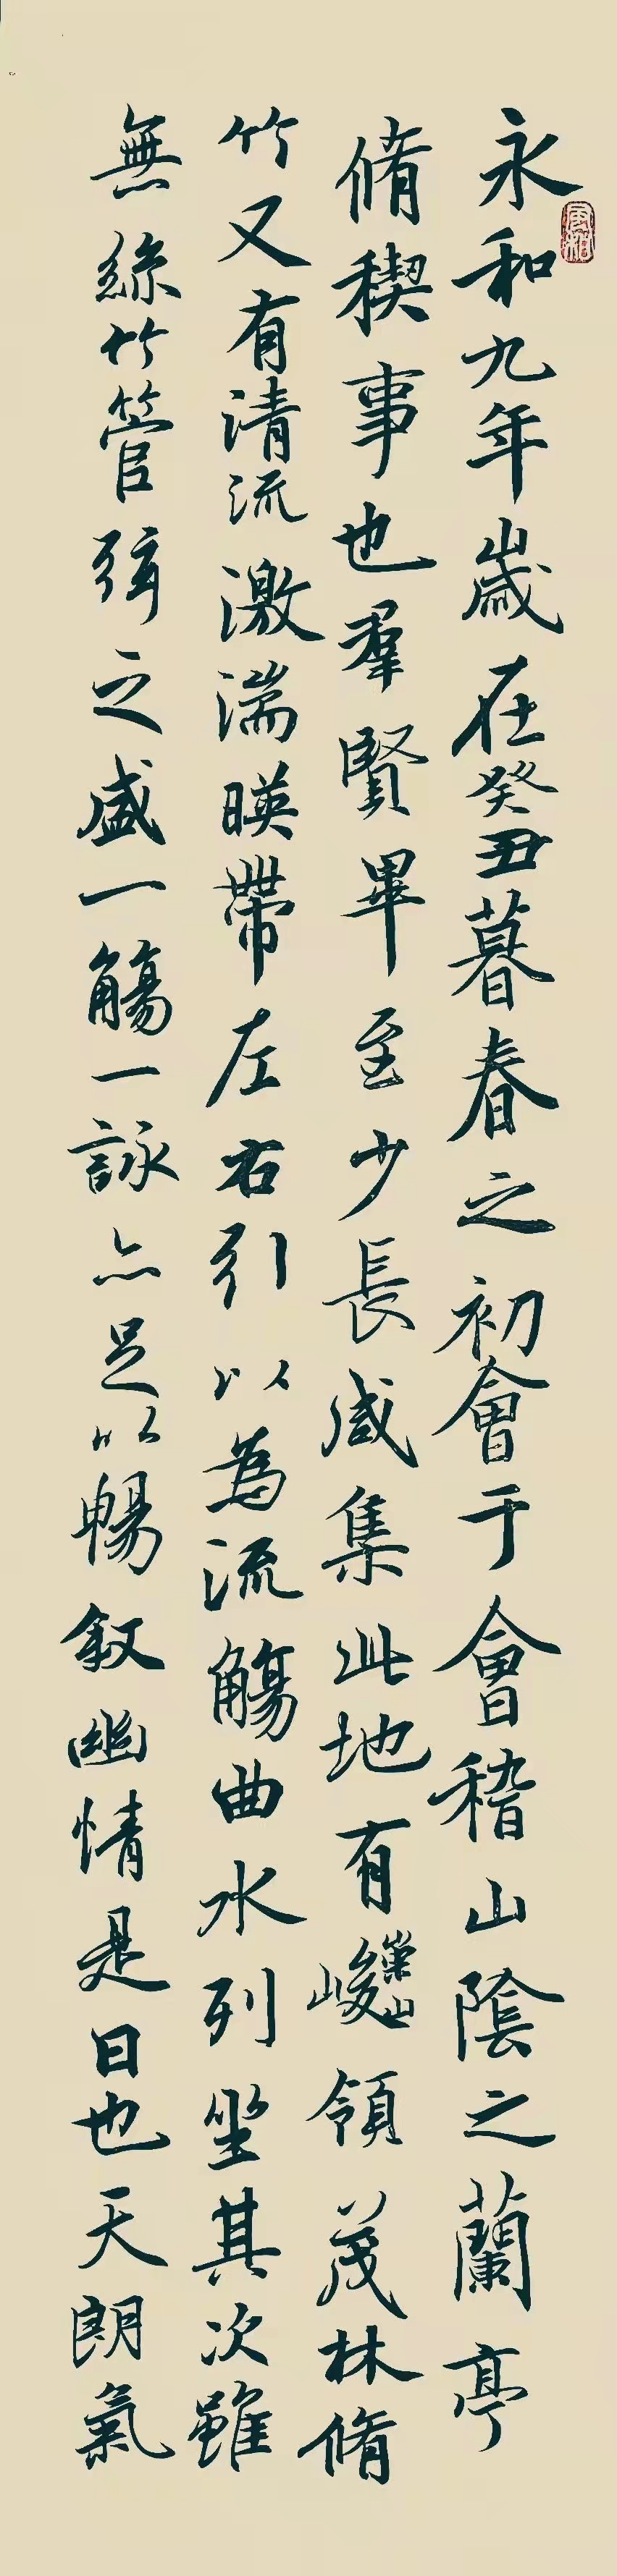 永和九年歲在癸丑暮春之初會于會稽山陰之蘭亭
脩稧事也羣賢畢至少長咸集此地有崇山峻領茂林脩
竹又有清流激湍暎帶左右引以為流觴曲水列坐其次雖
無絲竹管弦之盛一觴一詠亦足以暢叙幽情是日也天朗氣